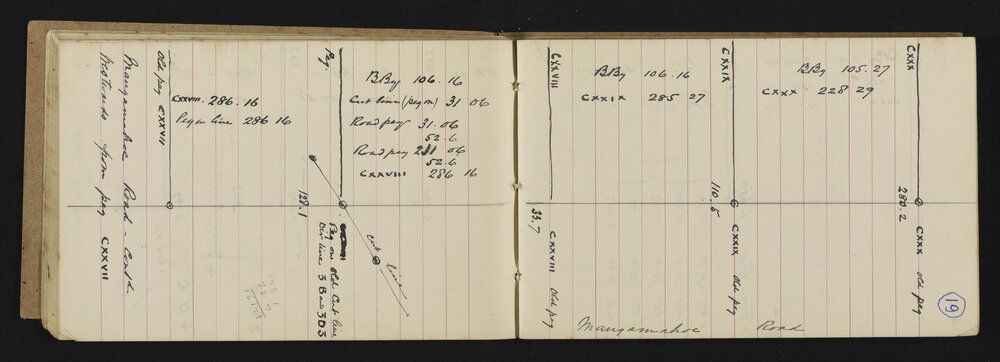 Mangamahoe Road - Contd.
from peg CXXVII
Old peg CXXVII
CXXVIII. 286.16
Peg on line 286 16
Peg.
BBy 106.16
Cut line (peg on) 31 06
Road peg 31.06
52.6
Road peg 211 06
52.6
CXXVIII 286 16
128.1
Peg on old Cut line
Div line 3 B and 3D3
cut line
CXXVIII
BBy 106.16
CXXIX 285 27
33.7
CXXVIII old peg
CXXIX
BBy 105.27
CXXX 228 29
110.5
CXXIX old peg
CXXX
280.2
CXXX old peg
Mangamahoe Road
19